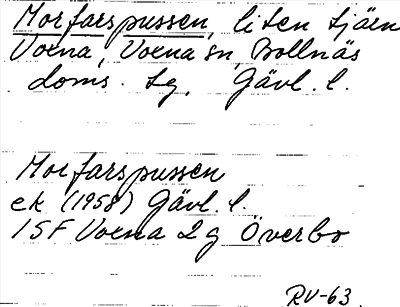 Morfarspussen, liten tjärn
Voxna, Voxna sn, Bollnäs
doms. tg, Gävl. l.
Morfarspussen
ek (1958) Gävl. l.
15F Voxna 2g Överbo
RV-63